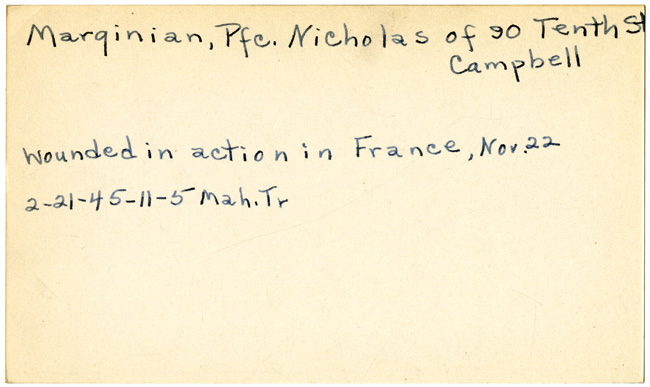 Marginian, Pfc. Nicholas of 90 Tenth St
Campbell
Wounded in action in France, Nov. 22
2-21-45-11-5 Mah. Tr